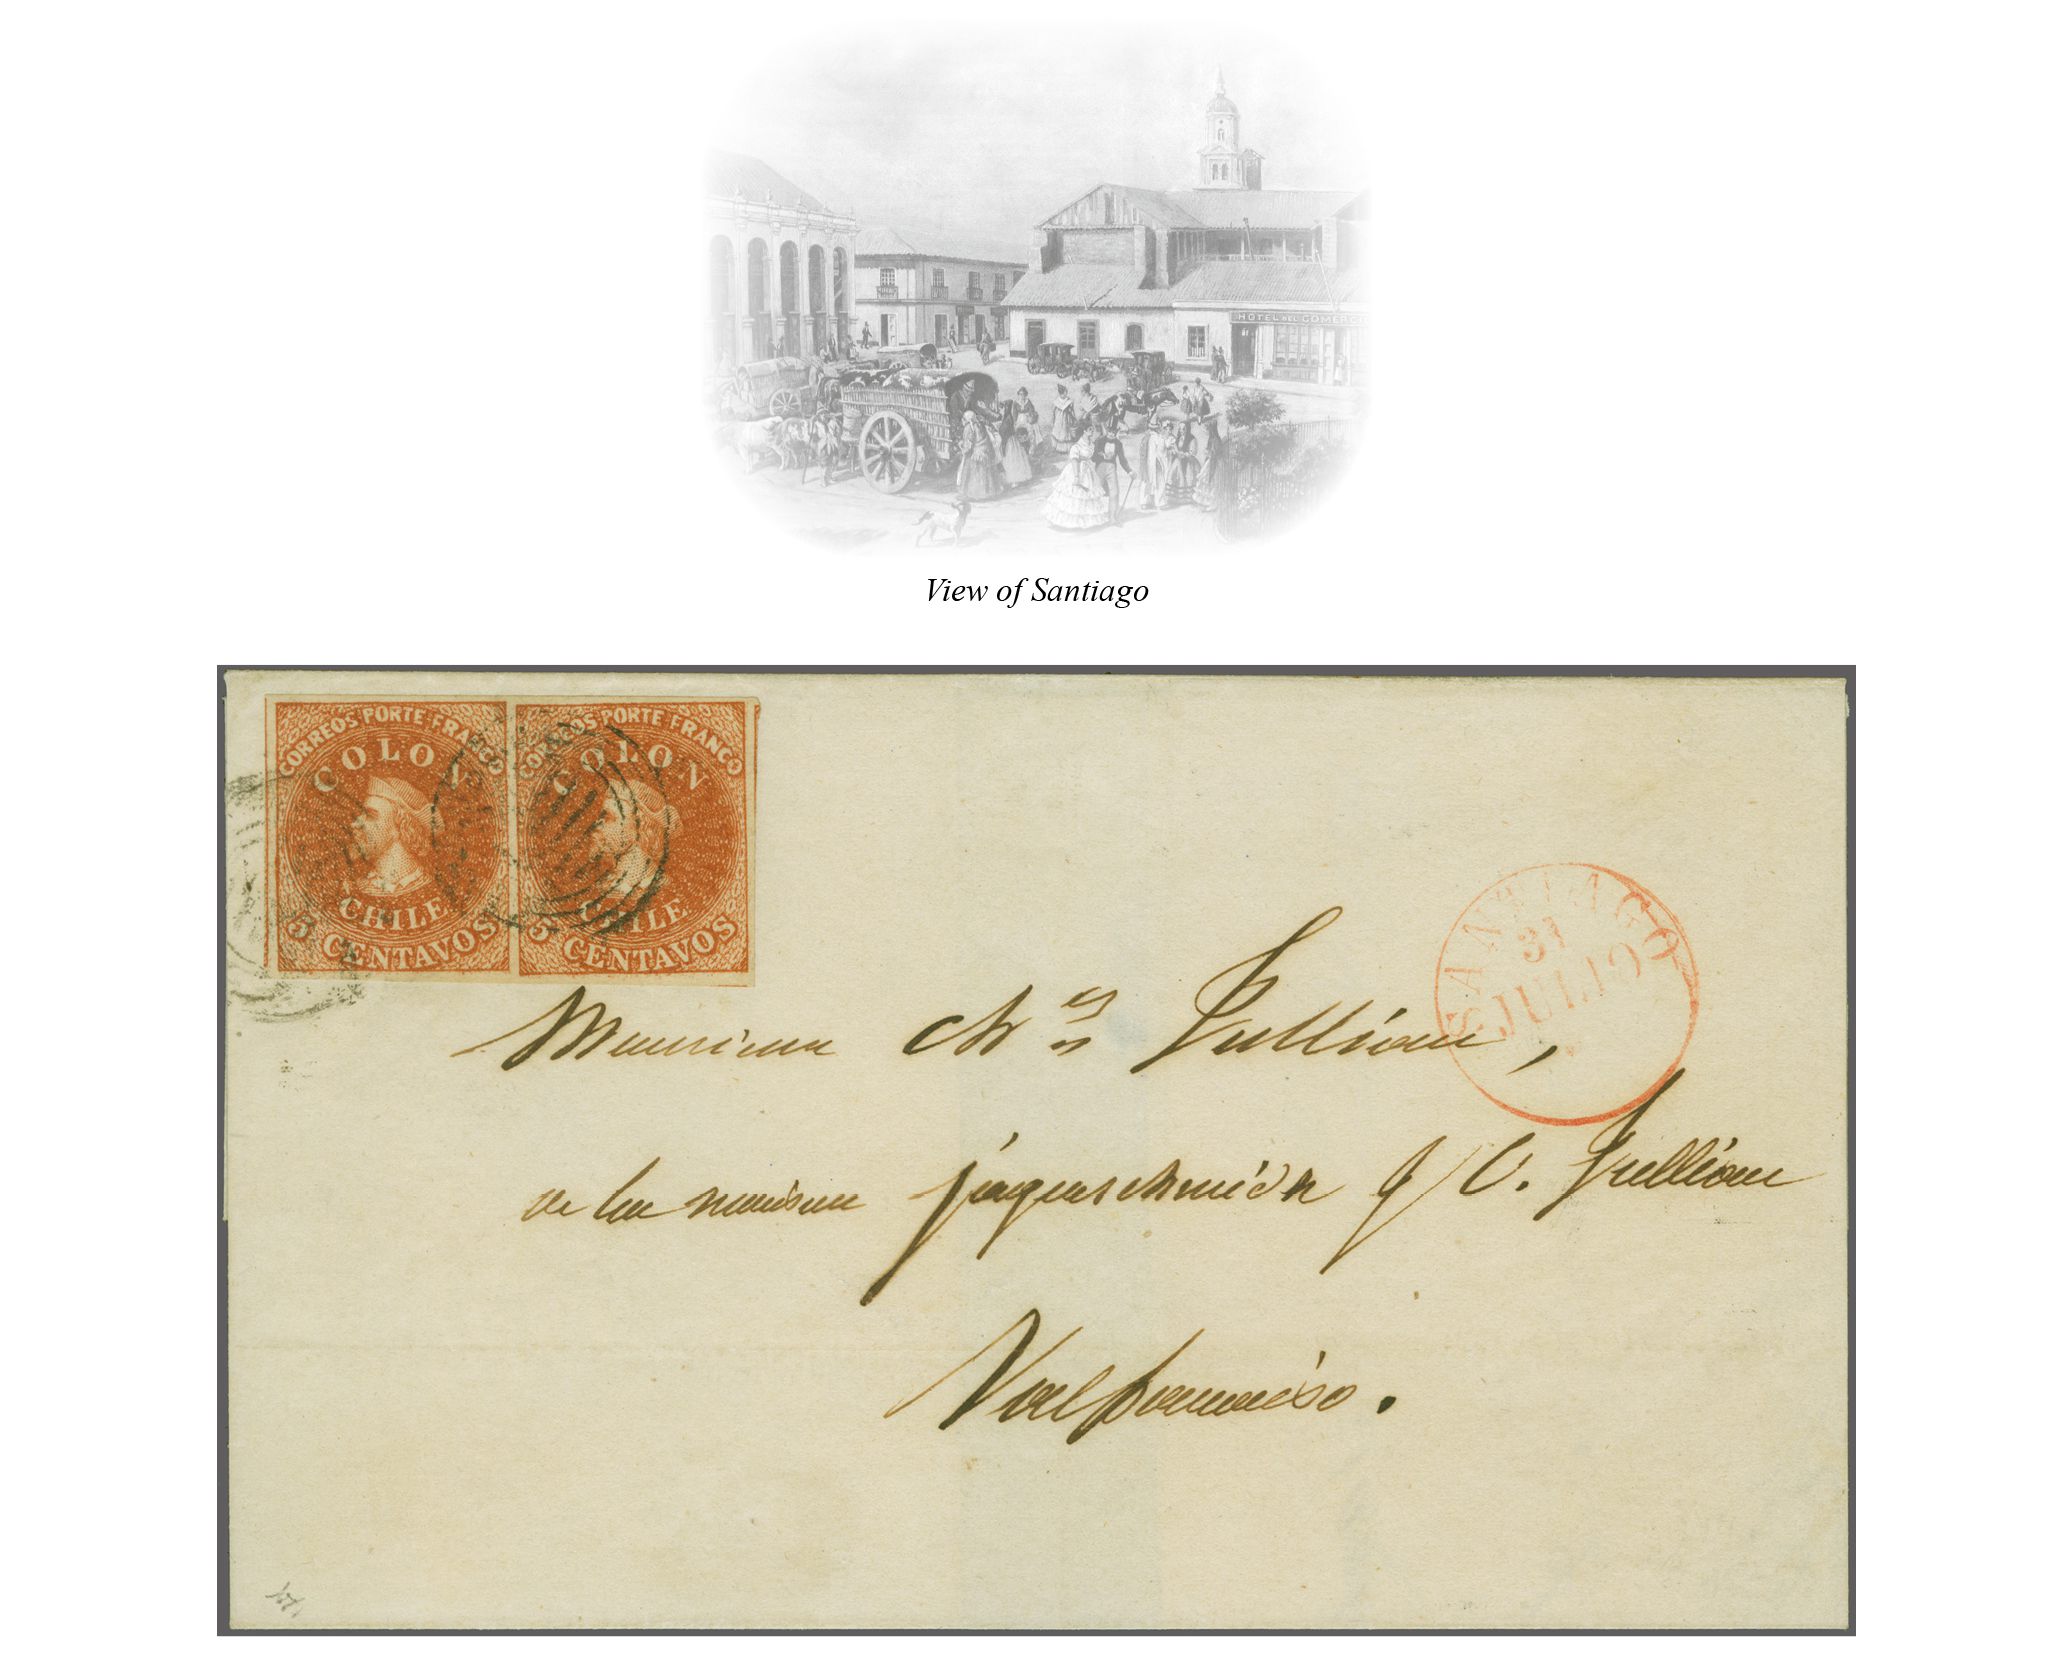 HOTEL DEL COMERCIO
View of Santiago
CORREOS PORTE FRANCO
COLON
CHILE
5 CENTAVOS
CORREOS PORTE FRANCO
COLON
CHILE
5 CENTAVOS
SANTIAGO
31
JULIO
Monsieur Ch.es Jullian,
de la maison Jequerschmidt f/ C. Jullian
Valparaiso.